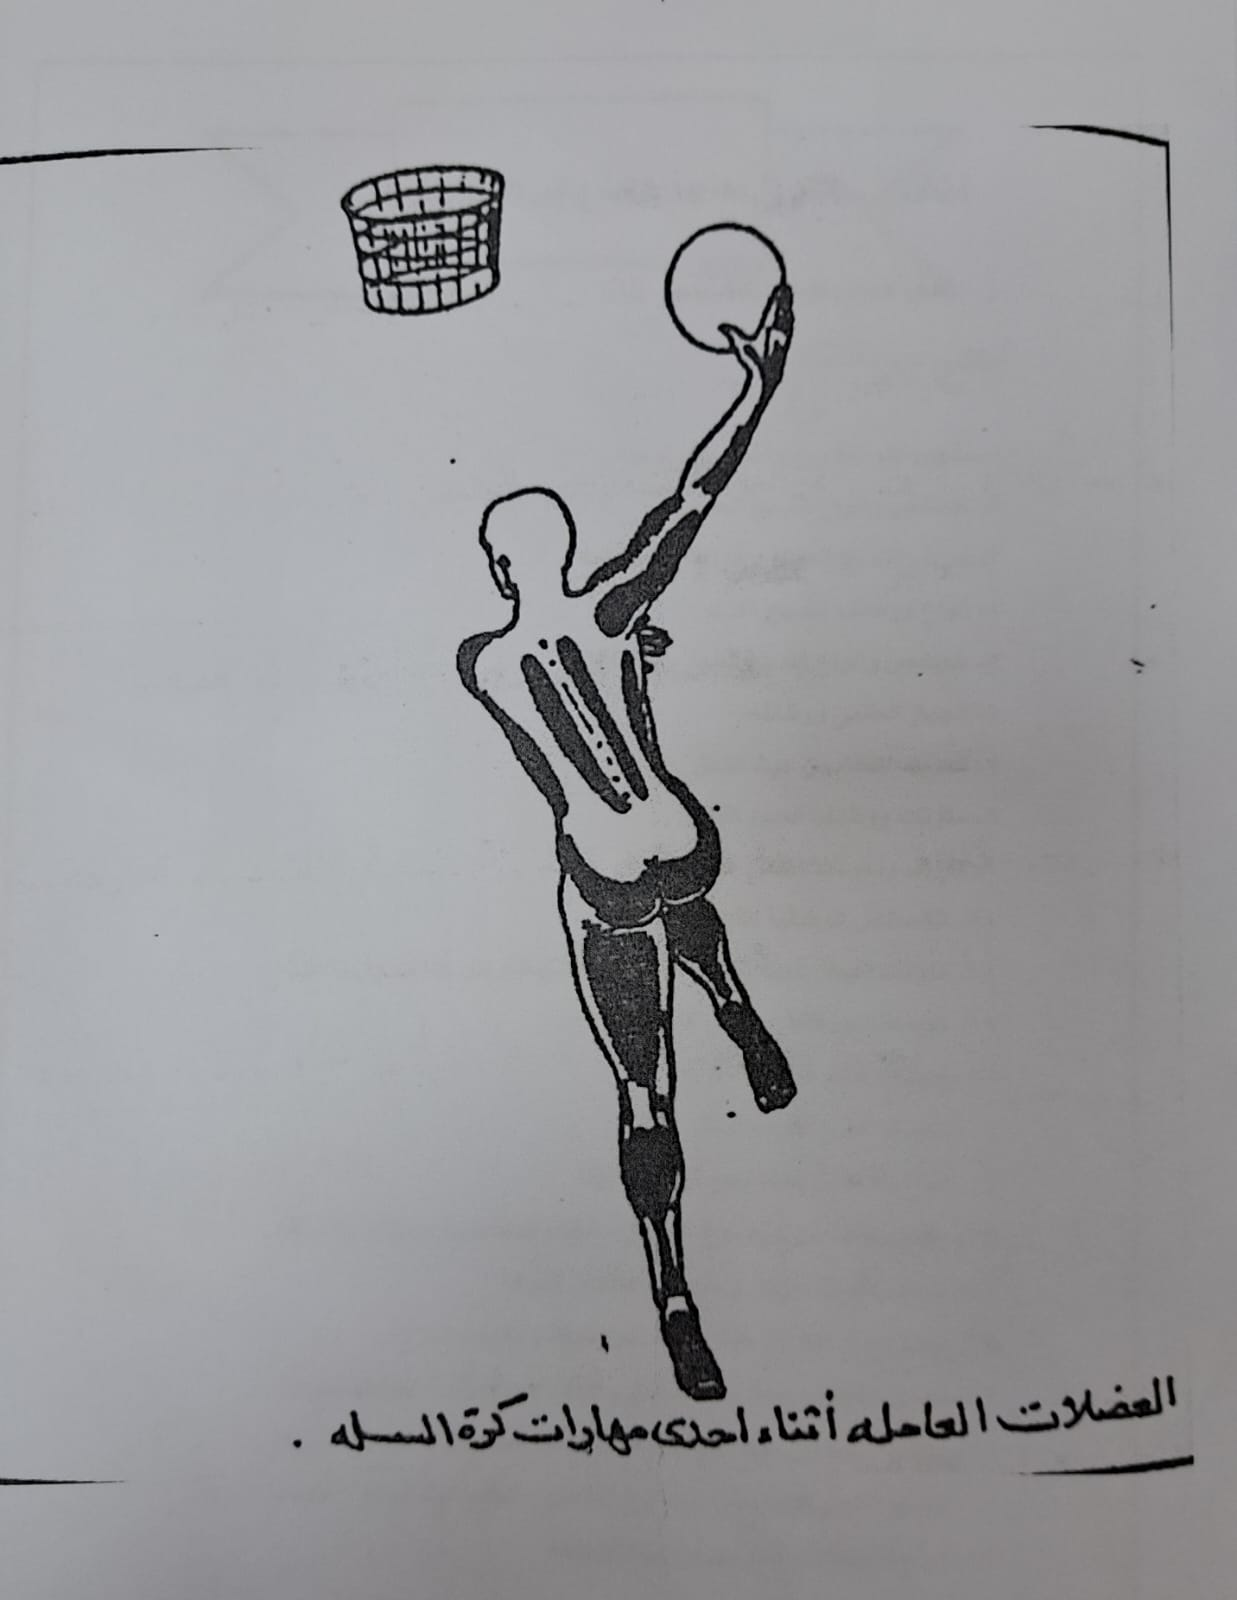 العضلات العامله أثناء احدى مهارات كرة السله .